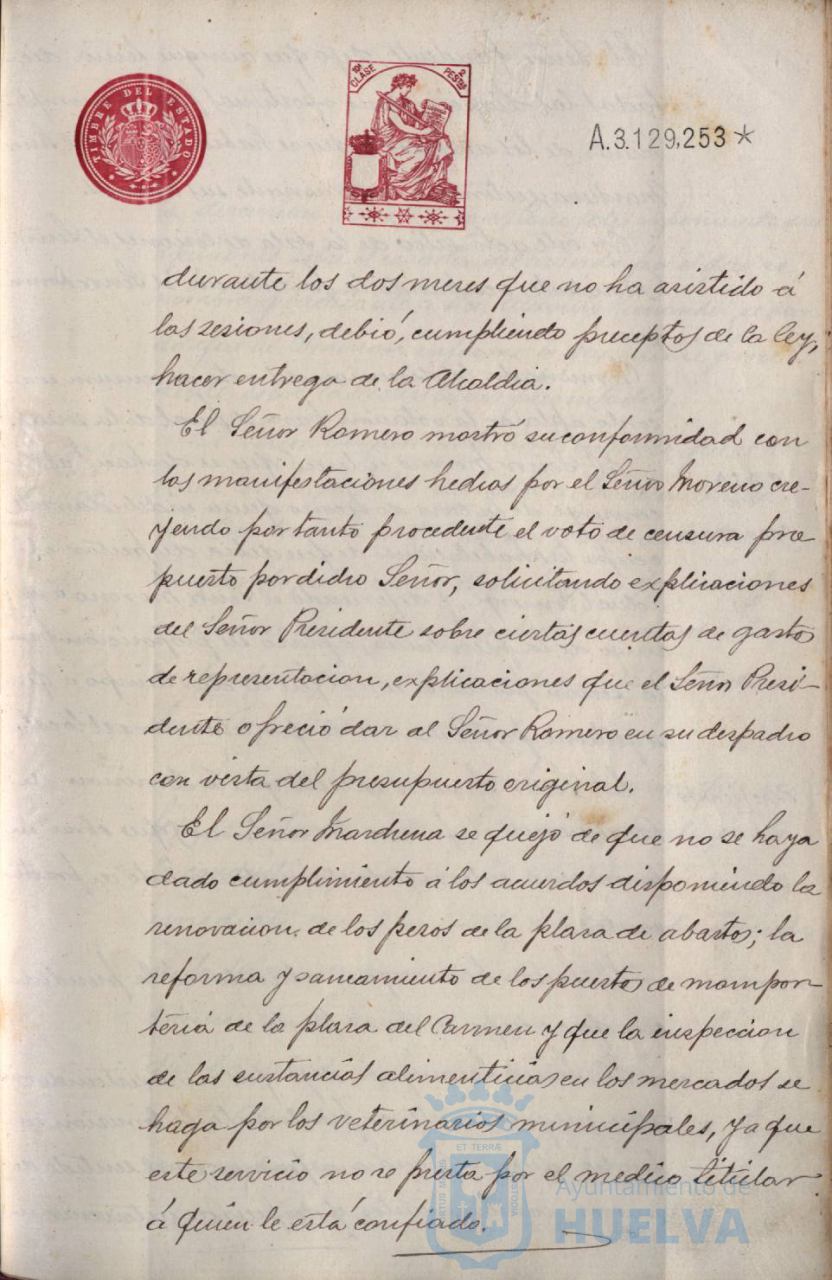 TIMBRE DEL ESTADO
10ª CLASE
2 PESTAS
A.3.129,253*
durante los dos meses que no ha asistido á
las sesiones, debió, cumpliendo preceptos de la ley,
hacer entrega de la Alcaldia.
El Señor Romero mostró su conformidad con
las manifestaciones hechas por el Señor Moreno cre-
yendo por tanto procedente el voto de censura pro
puesto por dicho Señor, solicitando explicaciones
del Señor Presidente sobre ciertas cuentas de gastos
de representacion, explicaciones que el Señor Presi-
dente ofreció dar al Señor Romero en su despacho
con vista del presupuesto original.
El Señor Marchena se quejó de que no se haya
dado cumplimiento á los acuerdos disponiendo la
renovacion de los pesos de la plaza de abastos; la
reforma y saneamiento de los puestos de mampos-
teria de la plaza del Carmen y que la inspeccion
de las sustancias alimenticias en los mercados se
haga por los veterinarios municipales, ya que
este servicio no se presta por el medico titular
á quien le está confiado.
ET TERRÆ
Ayuntamiento de
HUELVA